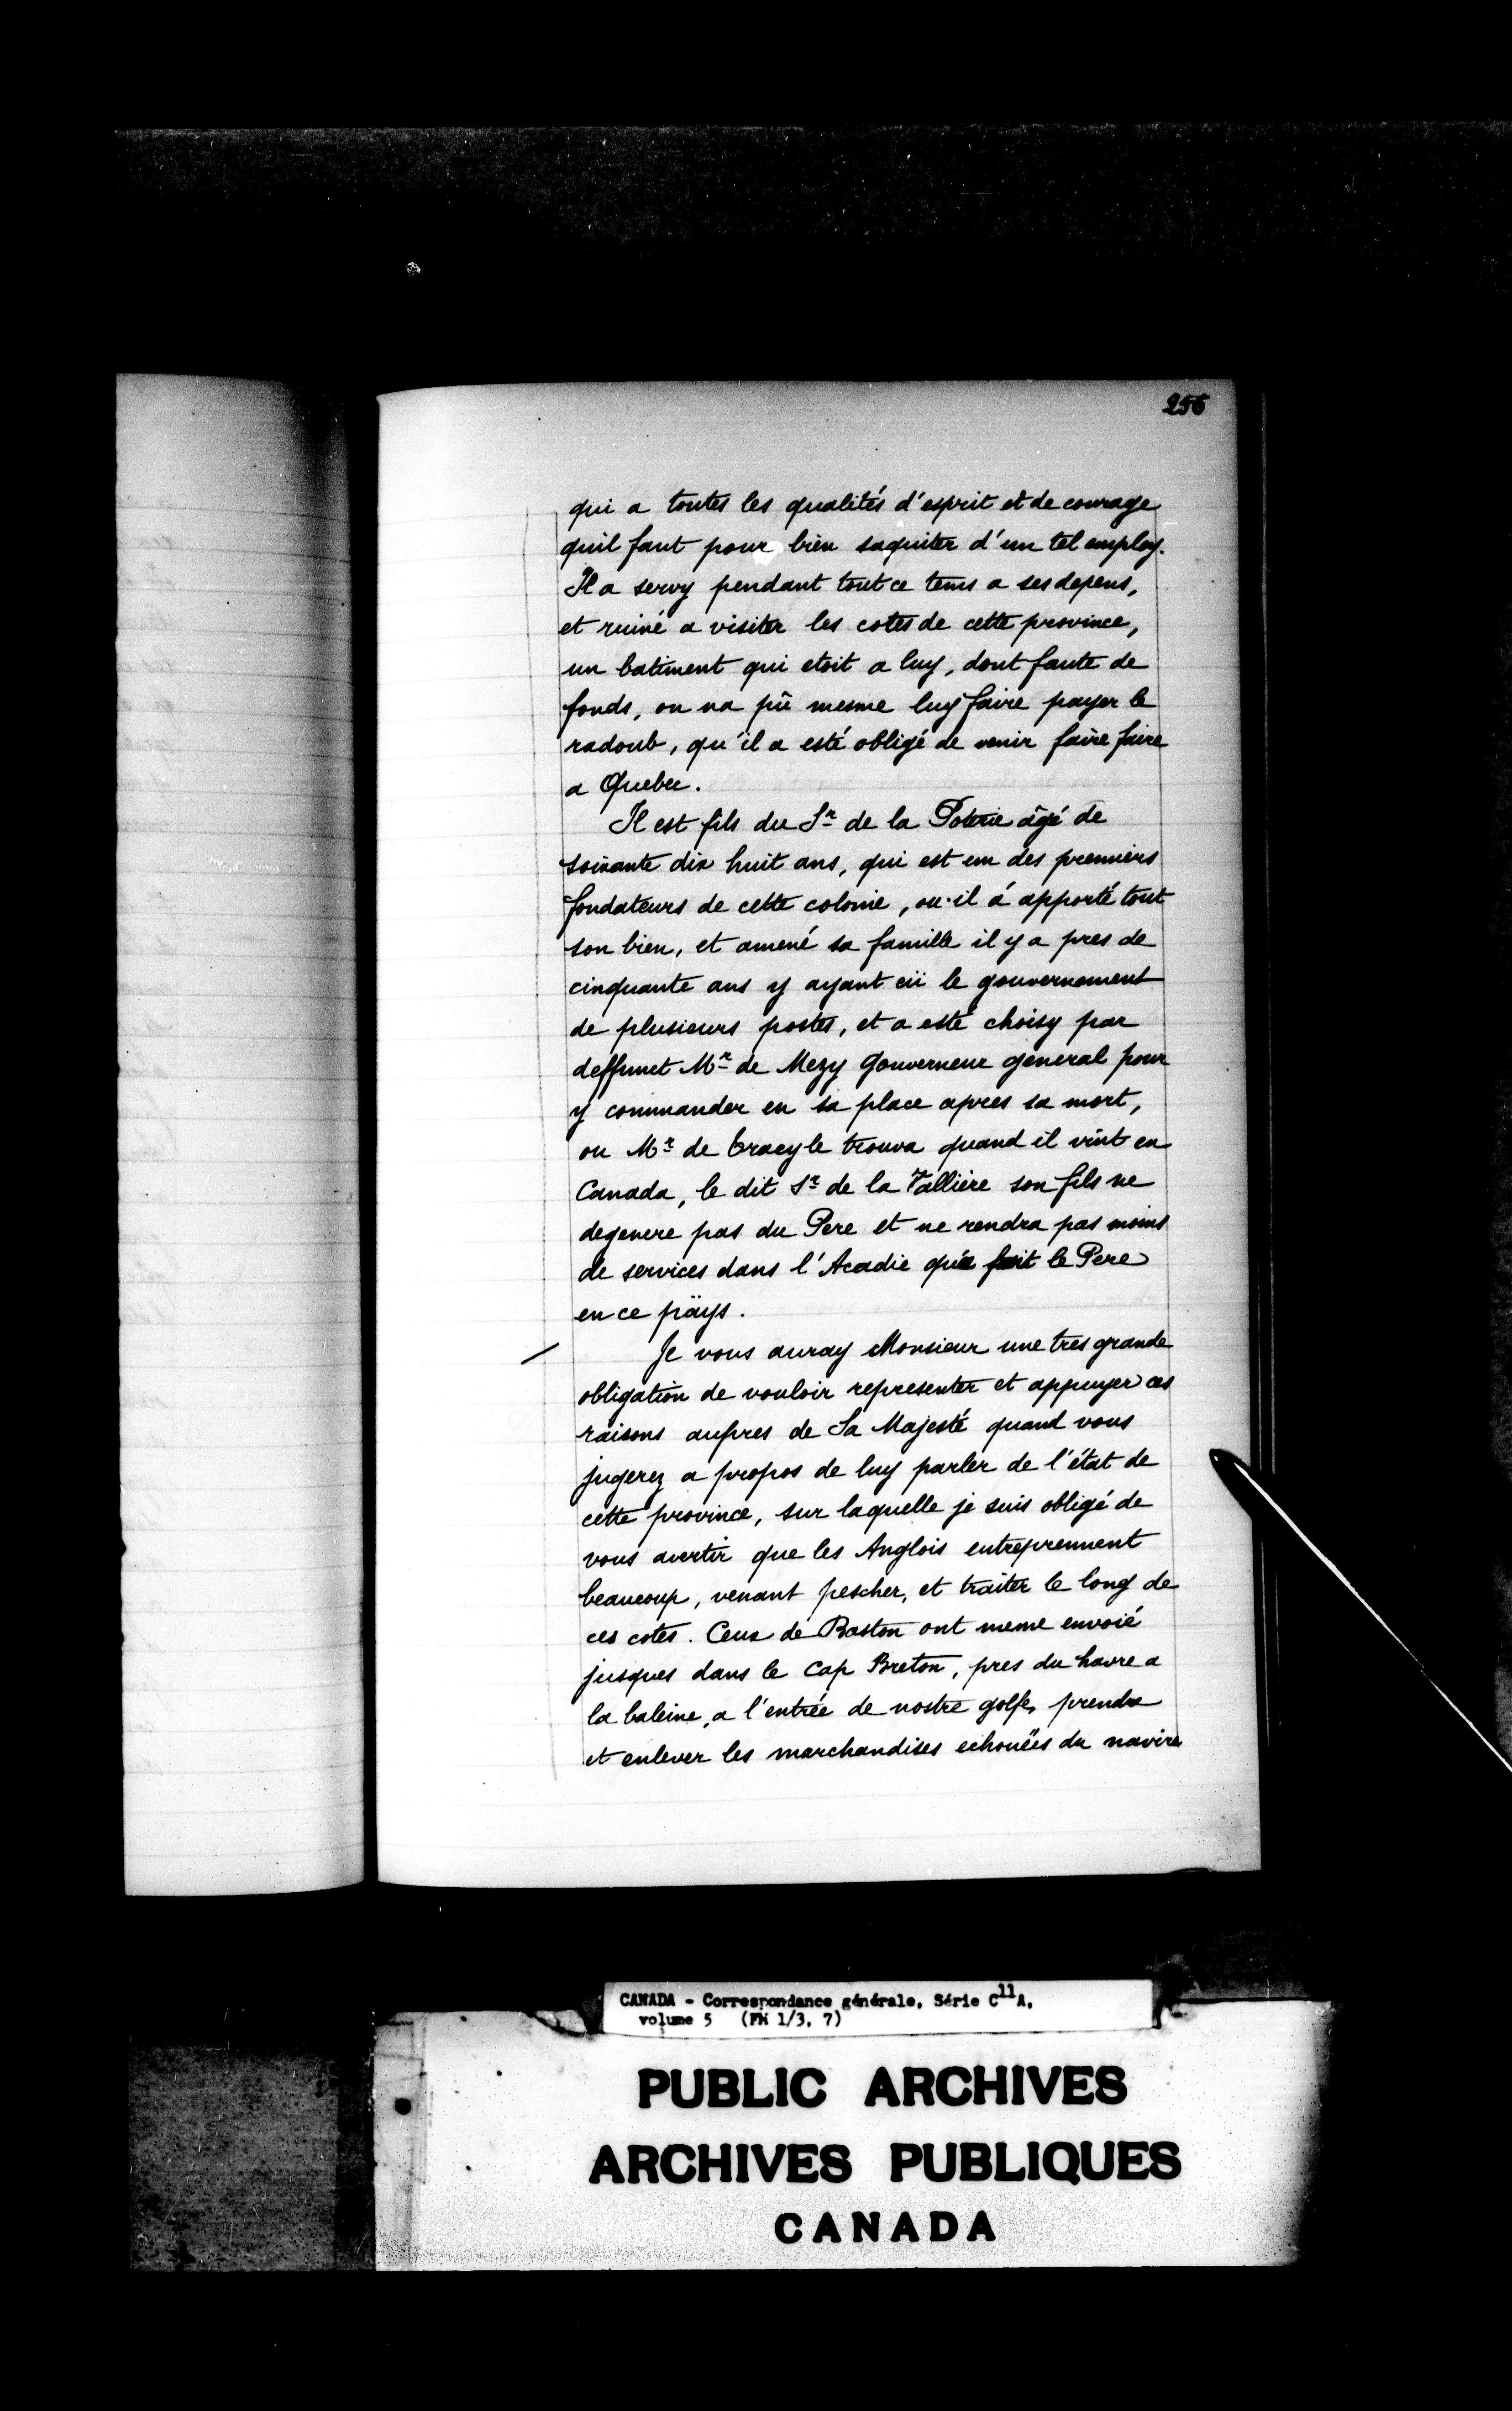 256
qui a toutes les qualités d'esprit et de courage
quil faut pour bien saquiter d'un tel employ.
Il a servy pendant tout ce tems a ses depens,
et ruiné a visiter les cotes de cette province,
un batiment qui etoit a luy, dont faute de
fonds, on na pû mesme luy faire payer le
radoub, qu'il a esté obligé de venir faire faire
a Quebec.
Il est fils du Sr de la Poterie âgé de
soixante dix huit ans, qui est un des premiers
fondateurs de cette colonie, ou il á apporté tout
son bien, et amené sa famille il y a pres de
cinquante ans y ayant eü le gouvernement
de plusieurs postes, et a esté choisy par
deffunct Mr de Mezy Gouverneur general pour
y commander en sa place apres sa mort,
ou Mr de Tracy le trouva quand il vint en
Canada, le dit Sr de la Vallière son fils ne
degenere pas du Pere et ne rendra pas moins
de services dans l'Acadie qu'a fait le Pere
en ce päys.
Je vous auray Monsieur une tres grande
obligation de vouloir representer et appuyer ces
raisons aupres de Sa Majesté quand vous
jugerez a propos de luy parler de l'état de
cette province, sur laquelle je suis obligé de
vous avertir que les Anglois entreprennent
beaucoup, venant pescher, et traiter le long de
ces cotes. Ceux de Baston ont meme envoié
jusques dans le Cap Breton, pres du havre a
la baleine, a l'entrée de nostre golfe, prendre
et enlever les marchandises echouëes du navire
CANADA - Correspondance générale, Série C11A,
volume 5 (FM 1/3, 7)
PUBLIC ARCHIVES
ARCHIVES PUBLIQUES
CANADA